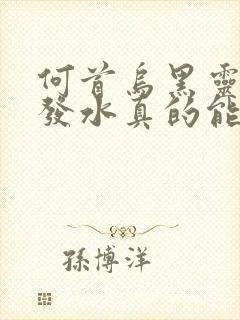 何首烏黑靈
發水真的能
孫博洋